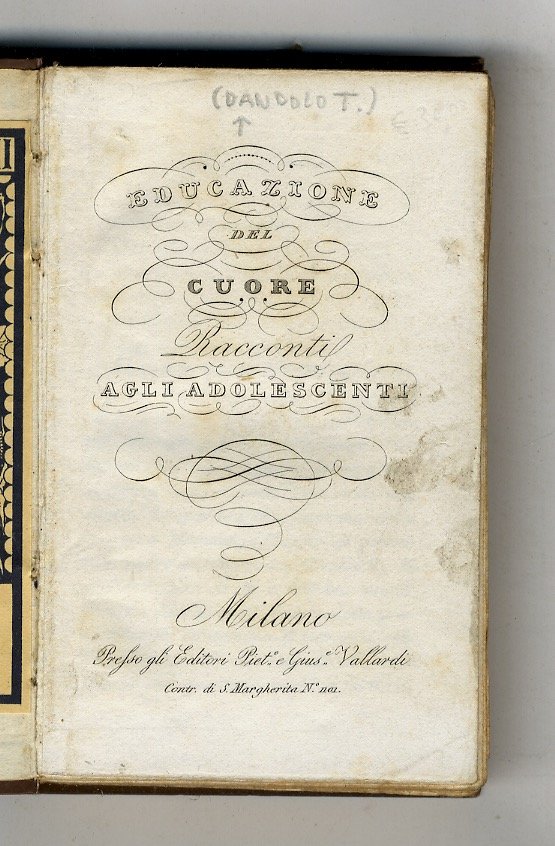 (DANDOLO T.)
EDUCAZIONE
DEL
CUORE
Racconti
AGLI ADOLESCENTI
Milano
Presso gli Editori Piet.º e Gius.ᵉ Vallardi
Contr. di S. Margherita N.º 1101.